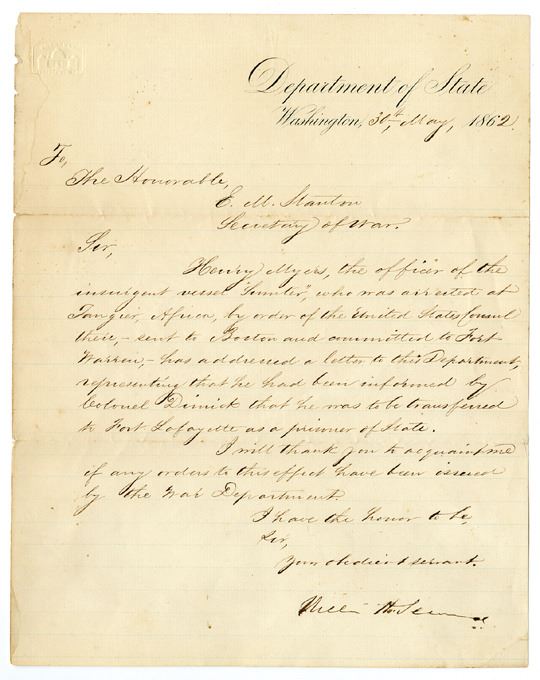 Department of State
Washington, 30th, May, 1862.
To,
The Honorable,
E. M. Stanton
Secretary of War.
Sir,
Henry Myers, the officer of the
insurgent vessel "Sumter", who was arrested at
Tangier, Africa, by order of the United States Consul
there, - sent to Boston and committed to Fort
Warren, - has addressed a letter to this Department,
representing that he had been informed by
Colonel Dimick that he was to be transferred
to Fort Lafayette as a prisoner of State.
I will thank you to acquaint me
if any orders to this effect have been issued
by the War Department
I have the honor to be,
Sir,
Your obedient servant.
William H. Seward